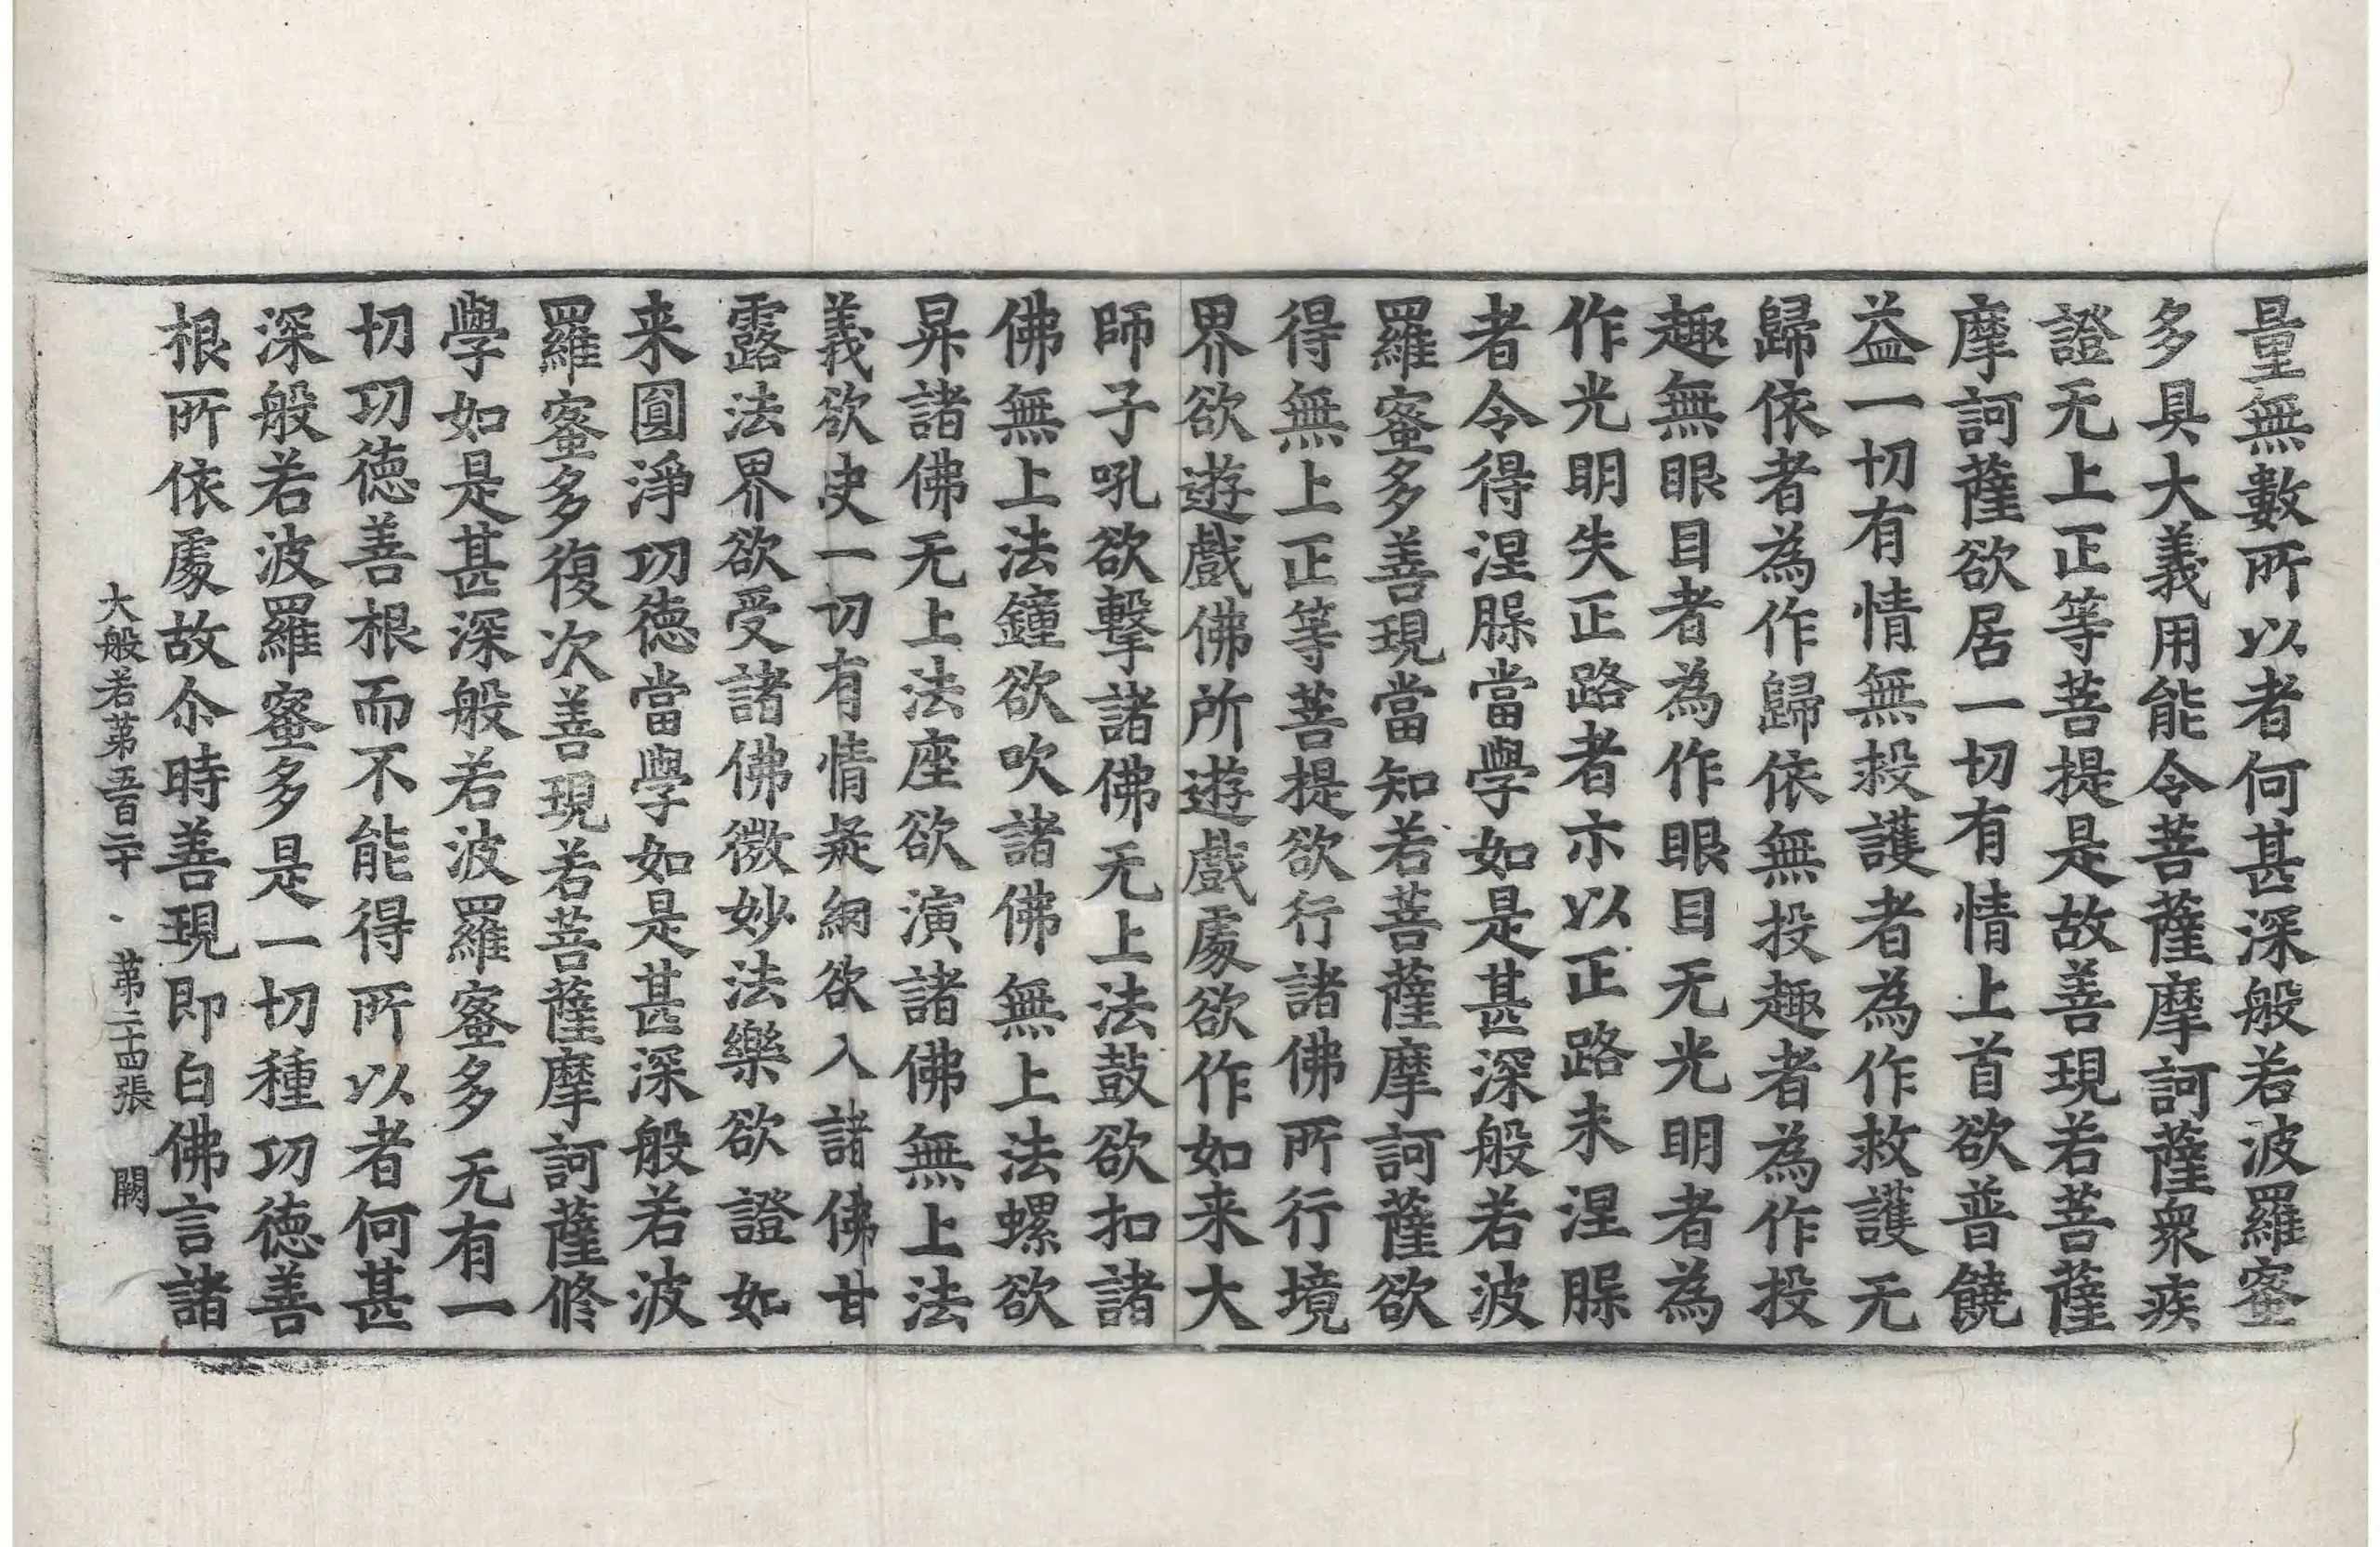 量無數所以者何甚深般若波羅蜜
多具大義用能令菩薩摩訶薩衆疾
證无上正等菩提是故善現若菩薩
摩訶薩欲居一切有情上首欲普饒
益一切有情無救護者為作救護无
歸依者為作歸依無投趣者為作投
趣無眼目者為作眼目无光明者為
作光明失正路者亦以正路未涅槃
者令得涅槃當學如是甚深般若波
羅蜜多善現當知若菩薩摩訶薩欲
得無上正等菩提欲行諸佛所行境
界欲遊戲佛所遊戲處欲作如来大
師子吼欲擊諸佛无上法鼓欲扣諸
佛無上法鐘欲吹諸佛無上法螺欲
昇諸佛无上法座欲演諸佛無上法
義欲决一切有情疑網欲入諸佛甘
露法界欲受諸佛微妙法樂欲證如
来圓淨功德當學如是甚深般若波
羅蜜多復次善現若菩薩摩訶薩修
學如是甚深般若波羅蜜多无有一
切功德善根而不能得所以者何甚
深般若波羅蜜多是一切種功德善
根所依處故尒時善現即白佛言諸
大般若第五百二十 第二十四張 闕